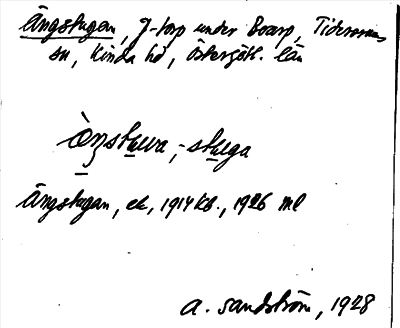 Ängstugan, J-torp under Boarp, Tidersrums
sn, Kinda hd, Östergötl. län
ängstuwa, -stuga
Ängstugan, ek, 1914 kb., 1926 ml
A. Sandström, 1928